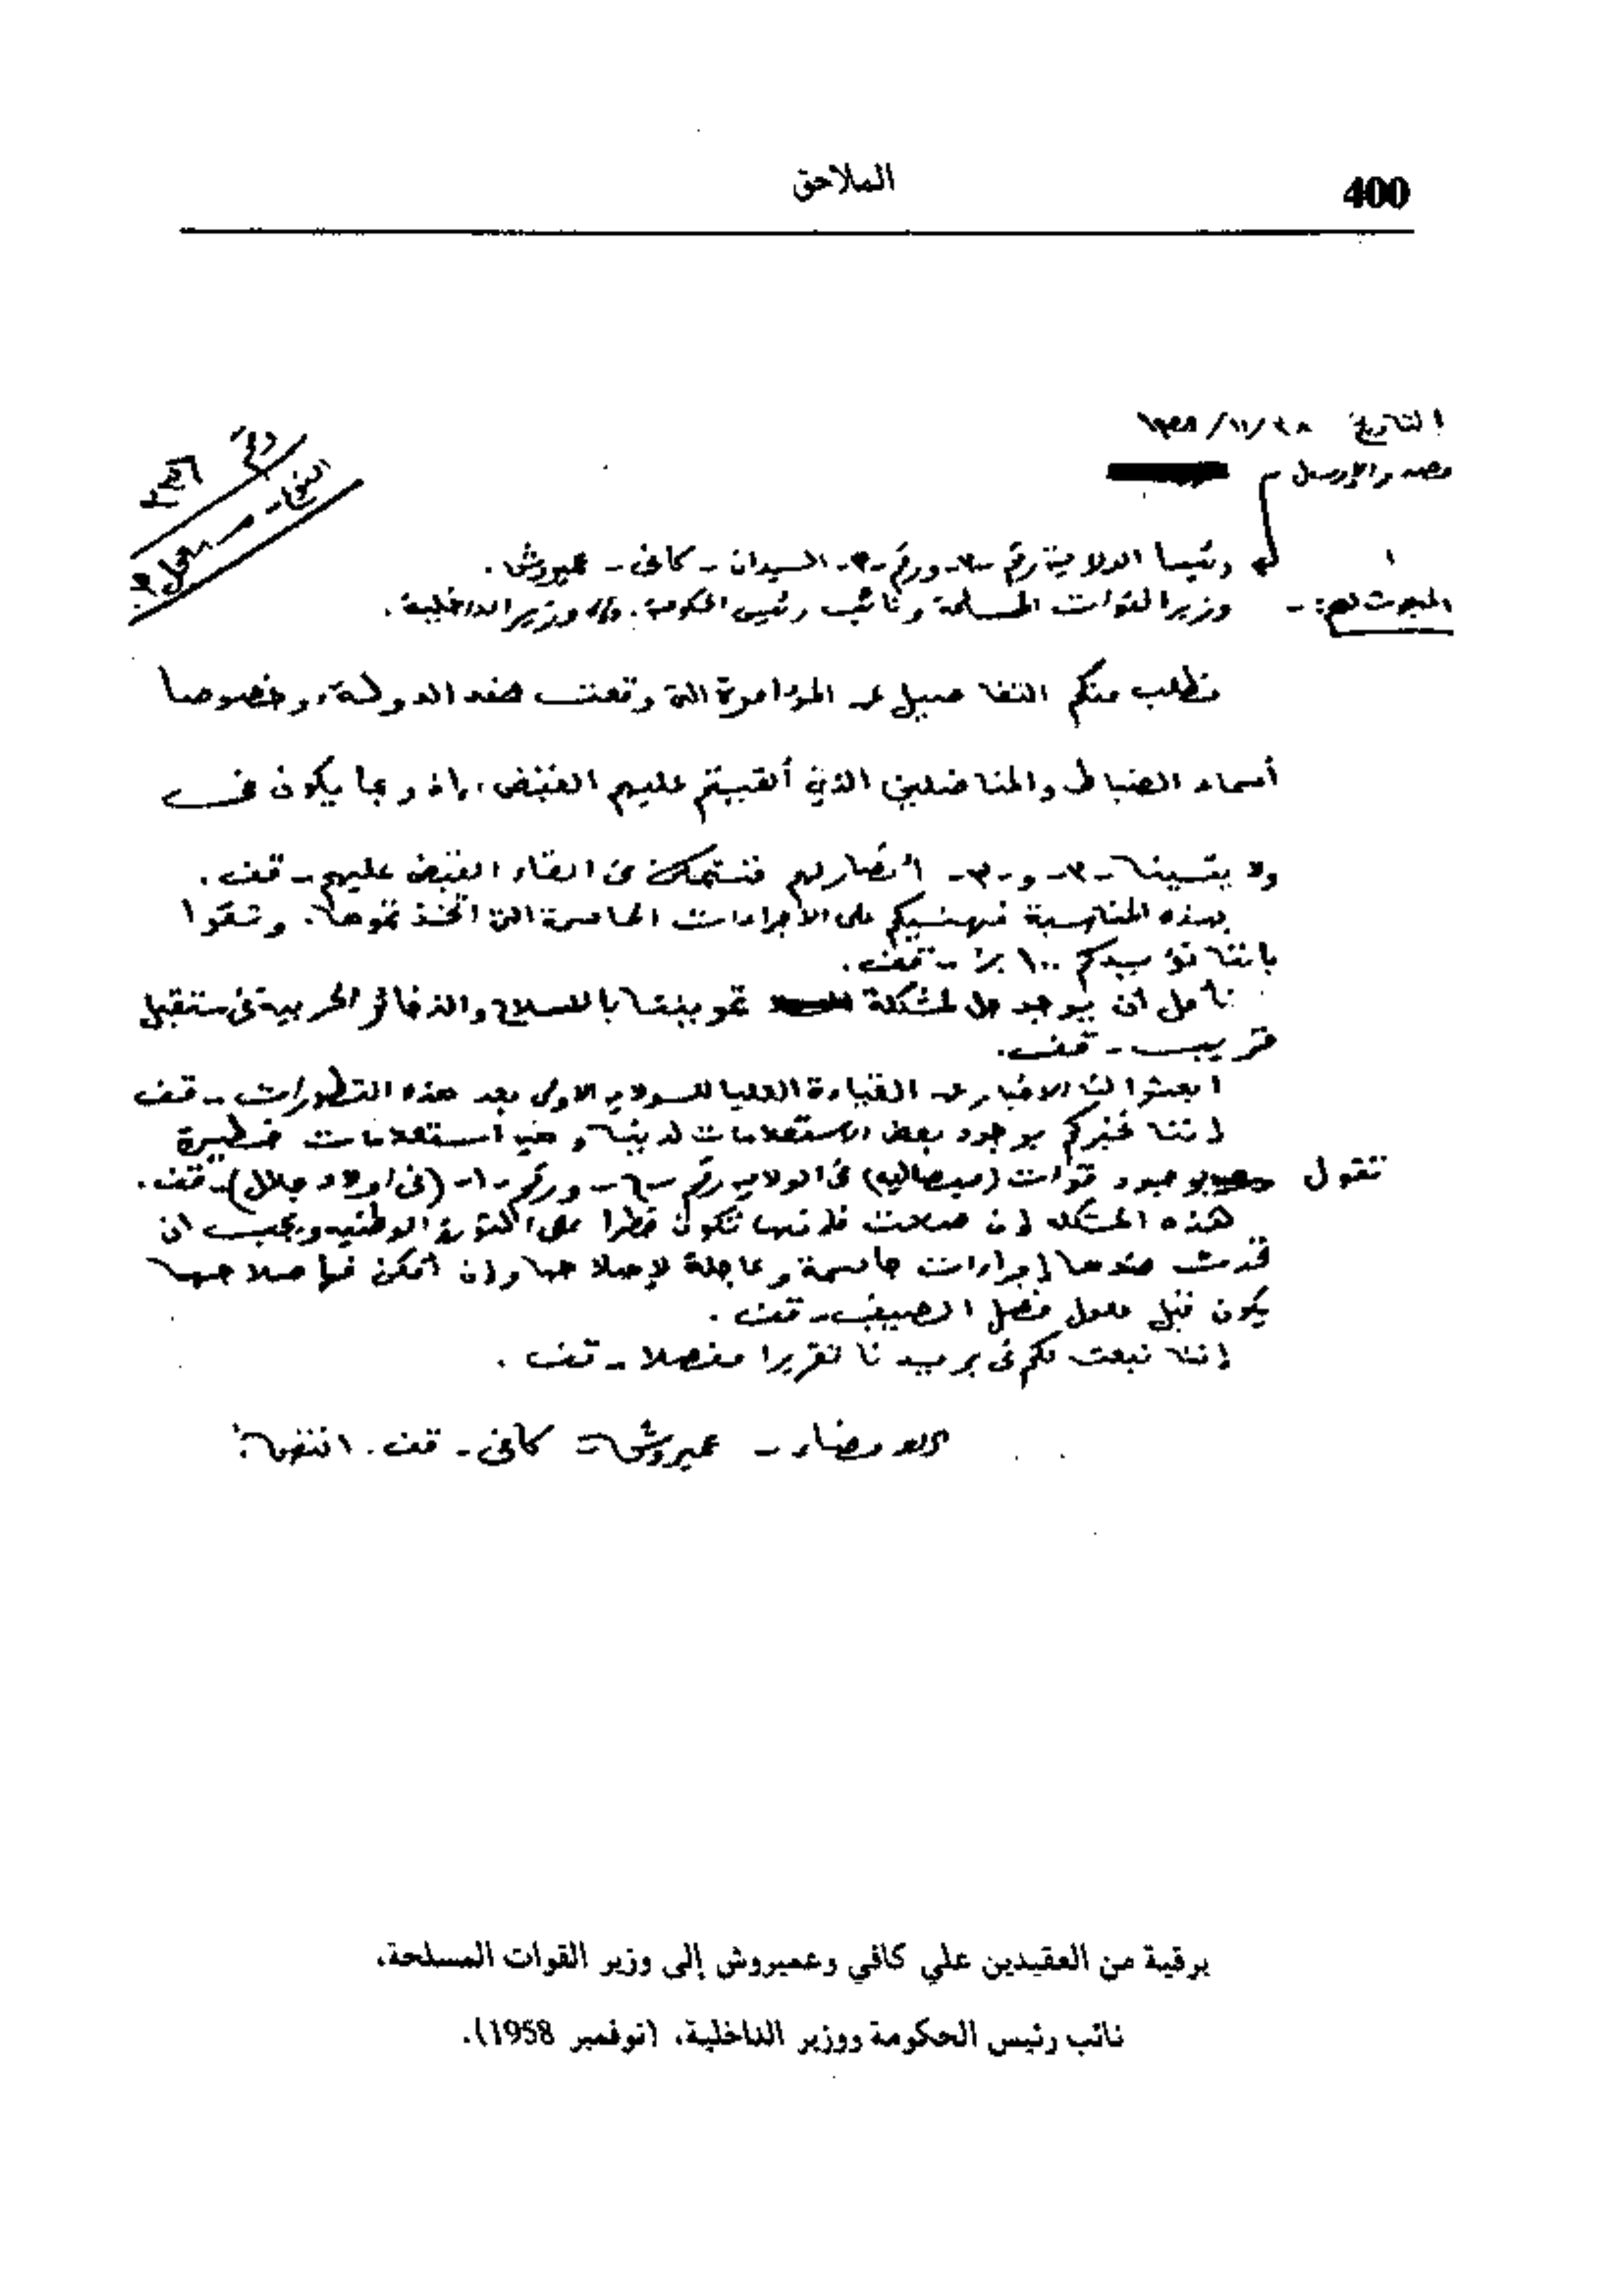 400
الملاحق
التاريخ ٢٨/١١/١٩٥٨
رئيسا الولاية رقم -٢- ورقم -٣- السيدان - كافى - عميروش.
المبعوث لهم: - وزير القوات المسلحة ونائب رئيس الحكومة. وزير الداخلية.
نطلب منكم التفاصيل عن المؤامرة التى وقعت ضد الدولة، وخصوصا
أسماء الضباط والمناضلين الذين ألقيتم عليهم القبض، إذ ربما يكون فى
ولايتينا -٢- و -٣- أنصار لهم فنتمكن من القاء القبض عليهم - قف.
بهذه المناسبة نهنئيكم على الأجراءات الحاسمة التى اتخذتموها. وثقوا
باننا نؤيدكم ١٠٠ ٪ - قف.
نأمل ان يوجد حل لمشكلة تمويننا بالسلاح والذخائر الحربية فى مستقبل
قريب - قف.
ابعثوا لنا الاخبار عن القيادة العليا للولاية الاولى بعد هذه التطورات - قف
اننا نخبركم بوجود بعض الاستعلامات لدينا وهى استعلامات خطيرة
تقول بوجود قوات (ميصاليه) فى الولايه رقم -٦- ورقم -١- (فى اولاد جلال) - قف.
هذه المشكله ان صحت فانها تكون خطرا على الثورة الوطنيه ويجب ان
تحدث ضدها إجراءات حاسمة وعاجلة لإصلاحها وإن أمكن فإصلاحها
يكون قبل حلول فصل الصيف - قف.
إننا نبعث لكم فى بريدنا تقريرا مفصلا - قف.
الامضاء - عميروش - كافى - قف. انتهى.
برقية من العقيدين علي كافي وعميروش إلى وزير القوات المسلحة،
نائب رئيس الحكومة ووزير الداخلية، (نوفمبر 1958).